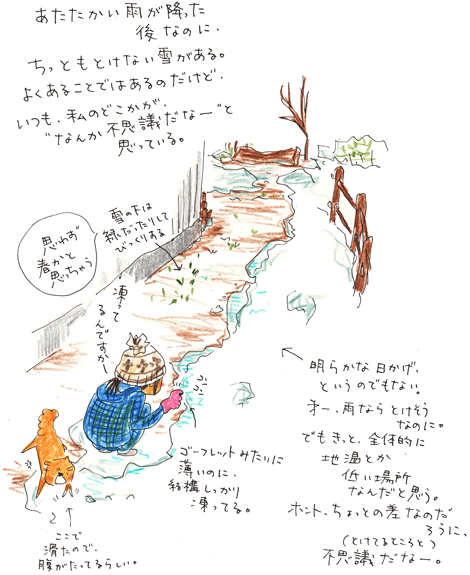 あたたかい雨が降った
後なのに、
ちっともとけない雪がある。
よくあることではあるのだけど、
いつも、私のどこかが、
"なんか不思議だなー"と
思っている。
雪の下は
緑だったりして
びっくりする
思わず
春かと
思っちゃう
凍って
るんですかー
コンコン
明らかな日かげ、
というのでもない。
才一、雨ならとけそう
なのに。
でもきっと、全体的に
地温とか
低い場所
なんだと思う。
ホント、ちょっとの差なのだ
ろうに、
(とけてるところと)
不思議だなー。
ゴーフレットみたいに
薄いのに、
結構しっかり
凍ってる。
ここで
滑たので、
腹がたってるらしい。